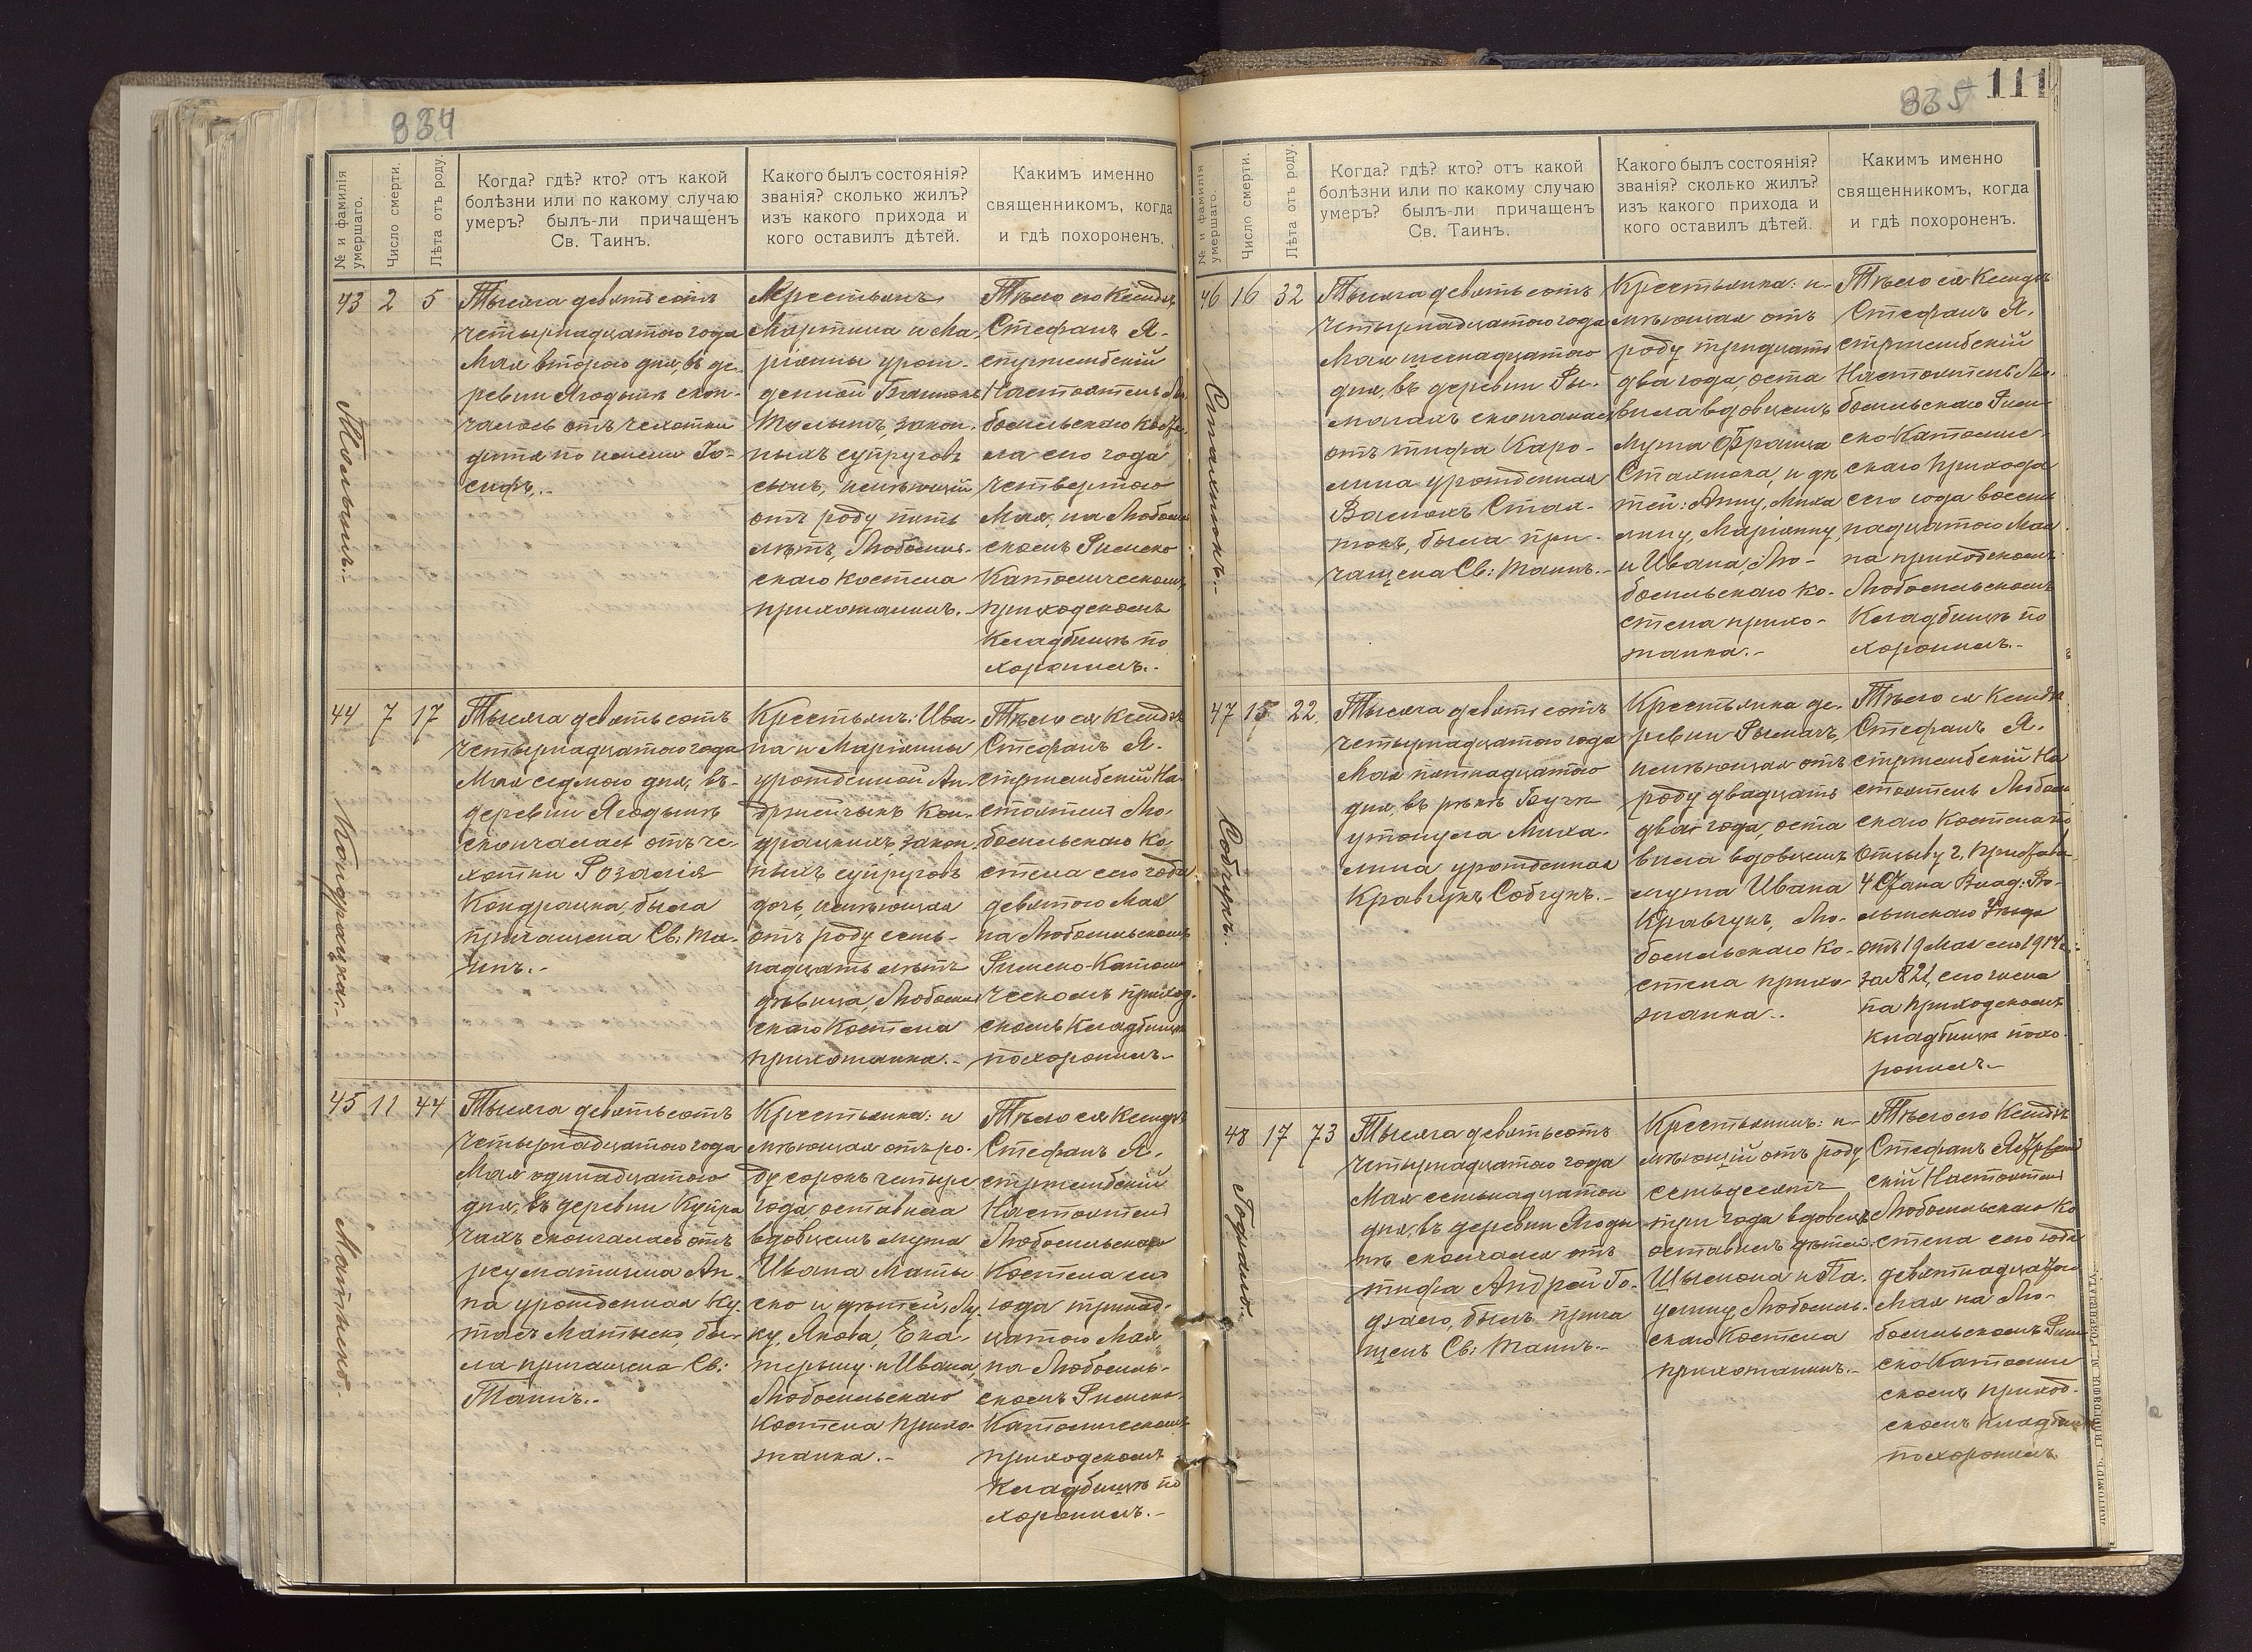 834
№ и фамилія умершаго.
Число смерти.
Лѣта отъ роду.
Когда? гдѣ? кто? отъ какой
болѣзни или по какому случаю
умеръ? былъ-ли причащенъ
Св. Таинъ.
Какого былъ состоянія?
званія? сколько жилъ?
изъ какого прихода и
кого оставилъ дѣтей.
Какимъ именно
священникомъ, когда
и гдѣ похороненъ.
43 2 5
Тысяча девятьсотъ
четырнадцатаго года
Мая второго дня, въ де-
ревни Ягодынѣ скон-
чалось отъ чехотки
дитя по имени Іо-
сифъ.-
Крестьянъ
Мартина и Ма-
ріанны урож-
денной
законныхъ супруговъ
сынъ, имѣющій
отъ роду пять
лѣтъ, Любомль-
скаго костела
прихожанинъ.-
Тѣло его Ксендзъ
Стефанъ Я-
стржембскій
Настоятель Лю-
бомльскаго Косте-
ла сего года
четвертого
Мая, на Любомль
скомъ Римско
Католическомъ
приходскомъ
Кладбищѣ по
хоронилъ.-
44 7 17
Кондрацка.-
Тысяча девятьсотъ
четырнадцатаго года
Мая седмого дня, въ-
деревни Ягодынѣ
скончалась отъ че-
хотки Розалія
Кондрацка, была
причащена Св: Та-
инъ.-
Крестьянъ: Ива-
на и Маріанны
урожденной Ан-
држейчыкъ Кон-
драцкихъ, закон-
ныхъ супруговъ
дочь, имѣющая
отъ роду семь-
надцать лѣтъ
дѣвица, Любомль
скаго Костела
прихожанка.-
Тѣло ея Ксендзъ
Стефанъ Я-
стржембскій На-
стоятель Лю-
бомльскаго Ко-
стела сего года
девятого Мая
на Любомльскомъ
Римско-Католи
ческомъ приход-
скомъ Кладбищѣ
похоронилъ.-
45 11 44
Матыско.
Тысяча девятьсотъ
четырнадцатаго года
Мая одинадцатого
дня, въ деревни Купра
чахъ скончалась отъ
реуматизма Ан-
на урожденная Ку-
Матыско, бы-
ла причащена Св:
Таинъ.-
Крестьянка: и
мѣющая отъ ро-
ду сорокъ четыре
года оставила
вдовцемъ мужа
Ивана Маты
ско и дѣтей: Лу-
ку, Якова, Ека-
терыну и Ивана,
Любомльскаго
Костела прихо-
жанка.-
Тѣло ея Ксендзъ
Стефанъ Я-
стржембскій
Настоятель
Любомльскаго
Костела сего
года тринад-
цатого Мая
на Любомль-
скомъ Римско-
Католическомъ
приходскомъ
Кладбищѣ по
хоронилъ.-
835
111
№ и фамилія умершаго.
Число смерти.
Лѣта отъ роду.
Когда? гдѣ? кто? отъ какой
болѣзни или по какому случаю
умеръ? былъ-ли причащенъ
Св. Таинъ.
Какого былъ состоянія?
званія? сколько жилъ?
изъ какого прихода и
кого оставилъ дѣтей.
Какимъ именно
священникомъ, когда
и гдѣ похороненъ.
46 16 32
Тысяча девятьсотъ
четырнадцатаго года
Мая шеснадцатого
дня, въ деревни Ры-
мачахъ скончалась
отъ тифа Каро-
лина урожденная
была при-
чащена Св: Таинъ.-
Крестьянка: и-
мѣющая отъ
роду тридцать
два года, оста
вила вдовцемъ
мужа Франца
и дѣ
тей: Анну, Миха
лину, Маріанну,
и Ивана, Лю-
бомльскаго Ко-
стела прихо-
жанка.-
Тѣло ея Ксендзъ
Стефанъ Я-
стржембскій
Настоятель Лю-
бомльскаго Рим-
ско-Католиче-
скаго Прихода
сего года восем-
надцатого Мая
на приходскомъ
Любомльскомъ
Кладбищѣ по
хоронилъ.-
47 15 22.
Собчукъ.
Тысяча девятьсотъ
четырнадцатаго года
Мая пятнадцатого
дня, въ рѣкѣ Бугѣ
утонула Миха-
лина урожденная
Кравчукъ Собчукъ.-
Крестьянка де-
ревни Рымачъ,
имѣющая отъ
роду двадцать
два года, оста
вила вдовцемъ
мужа Ивана
Кравчукъ, Лю-
бомльскаго Ко-
стела прихо-
жанка.-
Тѣло ея Ксендзъ
Стефанъ Я-
стржембскій На
стоятель Любомль
скаго Костела по
Отзыву г. Пристава
4 Стана Влад: Во-
лынскаго Уѣзда
отъ 19 Мая сего 1914 г.
за № 821, сего числа
на приходскомъ
кладбищѣ похо-
ронилъ.-
48 17 73
Тысяча девятьсотъ
четырнадцатаго года
Мая семьнадцатого
дня, въ деревни Ягоды
нѣ скончался отъ
тифа Андрей Го-
былъ прича
щенъ Св: Таинъ.-
Крестьянинъ: и-
мѣющій отъ роду
семьдесятъ
три года вдовецъ
оставилъ дѣтей:
Шымона и Па-
улину, Любомль-
скаго Костела
прихожанинъ.-
Тѣло его Ксендзъ
Стефанъ Ястржемб
скій Настоятель
Любомльскаго Ко
стела сего года
девятнадцатого
Мая на Лю-
бомльскомъ Рим
ско Католи
скомъ приход-
скомъ Кладбищѣ
похоронилъ